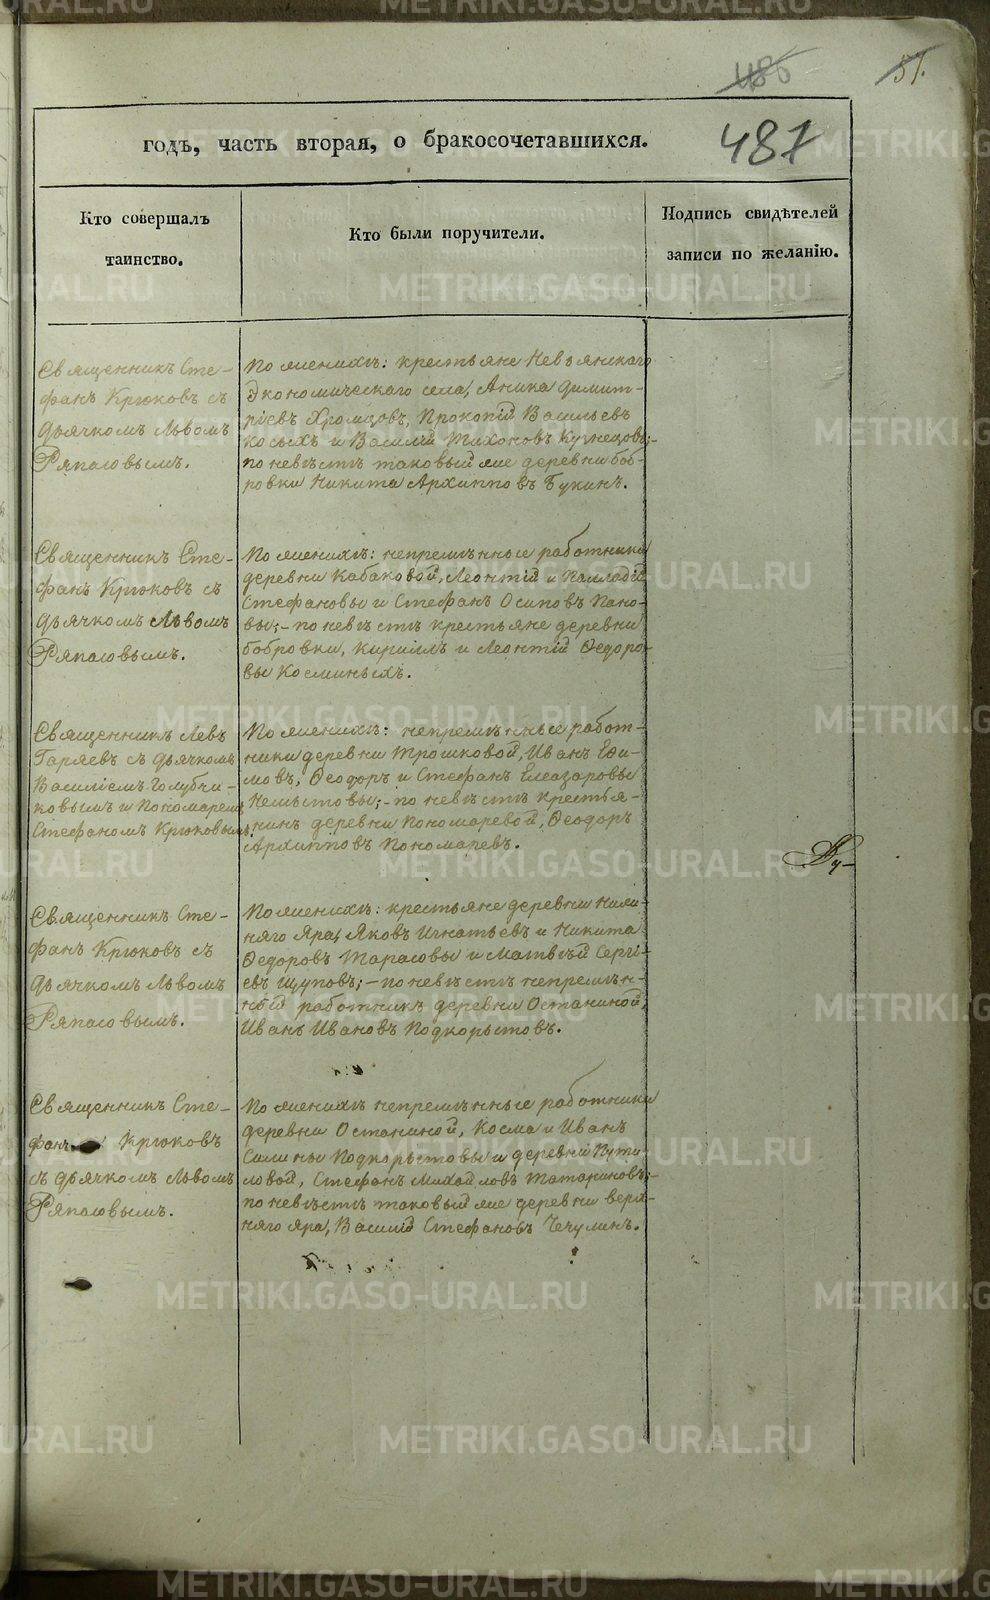 486
51.
487
годъ, часть вторая, о бракосочетавшихся.
Кто совершалъ
таинство.
Кто были поручители.
Подпись свидѣтелей
записи по желанію.
Священникъ Сте-
фанъ Крюковъ съ
дьячкомъ Львомъ
Ряпасовымъ.
По женихѣ: крестьяне Невьянскаго
Экономическаго села, Аника Димит-
ріевъ Хромцовъ, Прокопій Васильевъ
Косыхъ и Василій Тихоновъ Кузнецовъ;
по невѣстѣ таковый же деревни Боб-
ровки Никита Архипповъ Букинъ.
Священникъ Сте-
фанъ Крюковъ съ
дьячкомъ Львомъ
Ряпасовымъ.
По женихѣ: непремѣнные работники
деревни Кабаковой, Леонтій и Палладій
Стефановы и Стефанъ Осиповъ Пано-
вы;- по невѣстѣ крестьяне деревни
Бобровки, Кириллъ и Леонтій Ѳедоро-
вы Косминыхъ.
Священникъ Левъ
Гаряевъ съ дьячкомъ
Василіемъ Голубчи-
ковымъ и Пономаремъ
Стефаномъ Крюковымъ.
По женихѣ: непремѣнные работ-
ники деревни Трошковой, Иванъ Ефи-
мовъ, Ѳеодоръ и Стефанъ Елеазаровы
Немытовы;- по невѣстѣ крестья-
нинъ деревни Пономаревой, Ѳеодоръ
Архипповъ Пономаревъ.
Ду-
Священникъ Сте-
фанъ Крюковъ съ
дьячкомъ Львомъ
Ряпасовымъ.
По женихѣ: крестьяне деревни Ниж-
няго Яра, Яковъ Игнатьевъ и Никита
Ѳедоровъ Тарасовы и Матвѣй Сергі-
евъ Щуповъ;- по невѣстѣ непремѣн-
ный работникъ деревни Останиной,
Иванъ Ивановъ Подкорытовъ.
Священникъ Сте-
фанъ Крюковъ
съ дьячкомъ Львомъ
Ряпасовымъ.
По женихѣ непремѣнные работники
деревни Останиной, Косма и Иванъ
Силины Подкорытовы и деревни Гути-
ловой, Стефанъ Михайловъ Татариновъ;-
по невѣстѣ таковый же деревни Верх-
няго Яра, Василій Стефановъ Чечулинъ.
METRIKI.GASO-URAL.RU